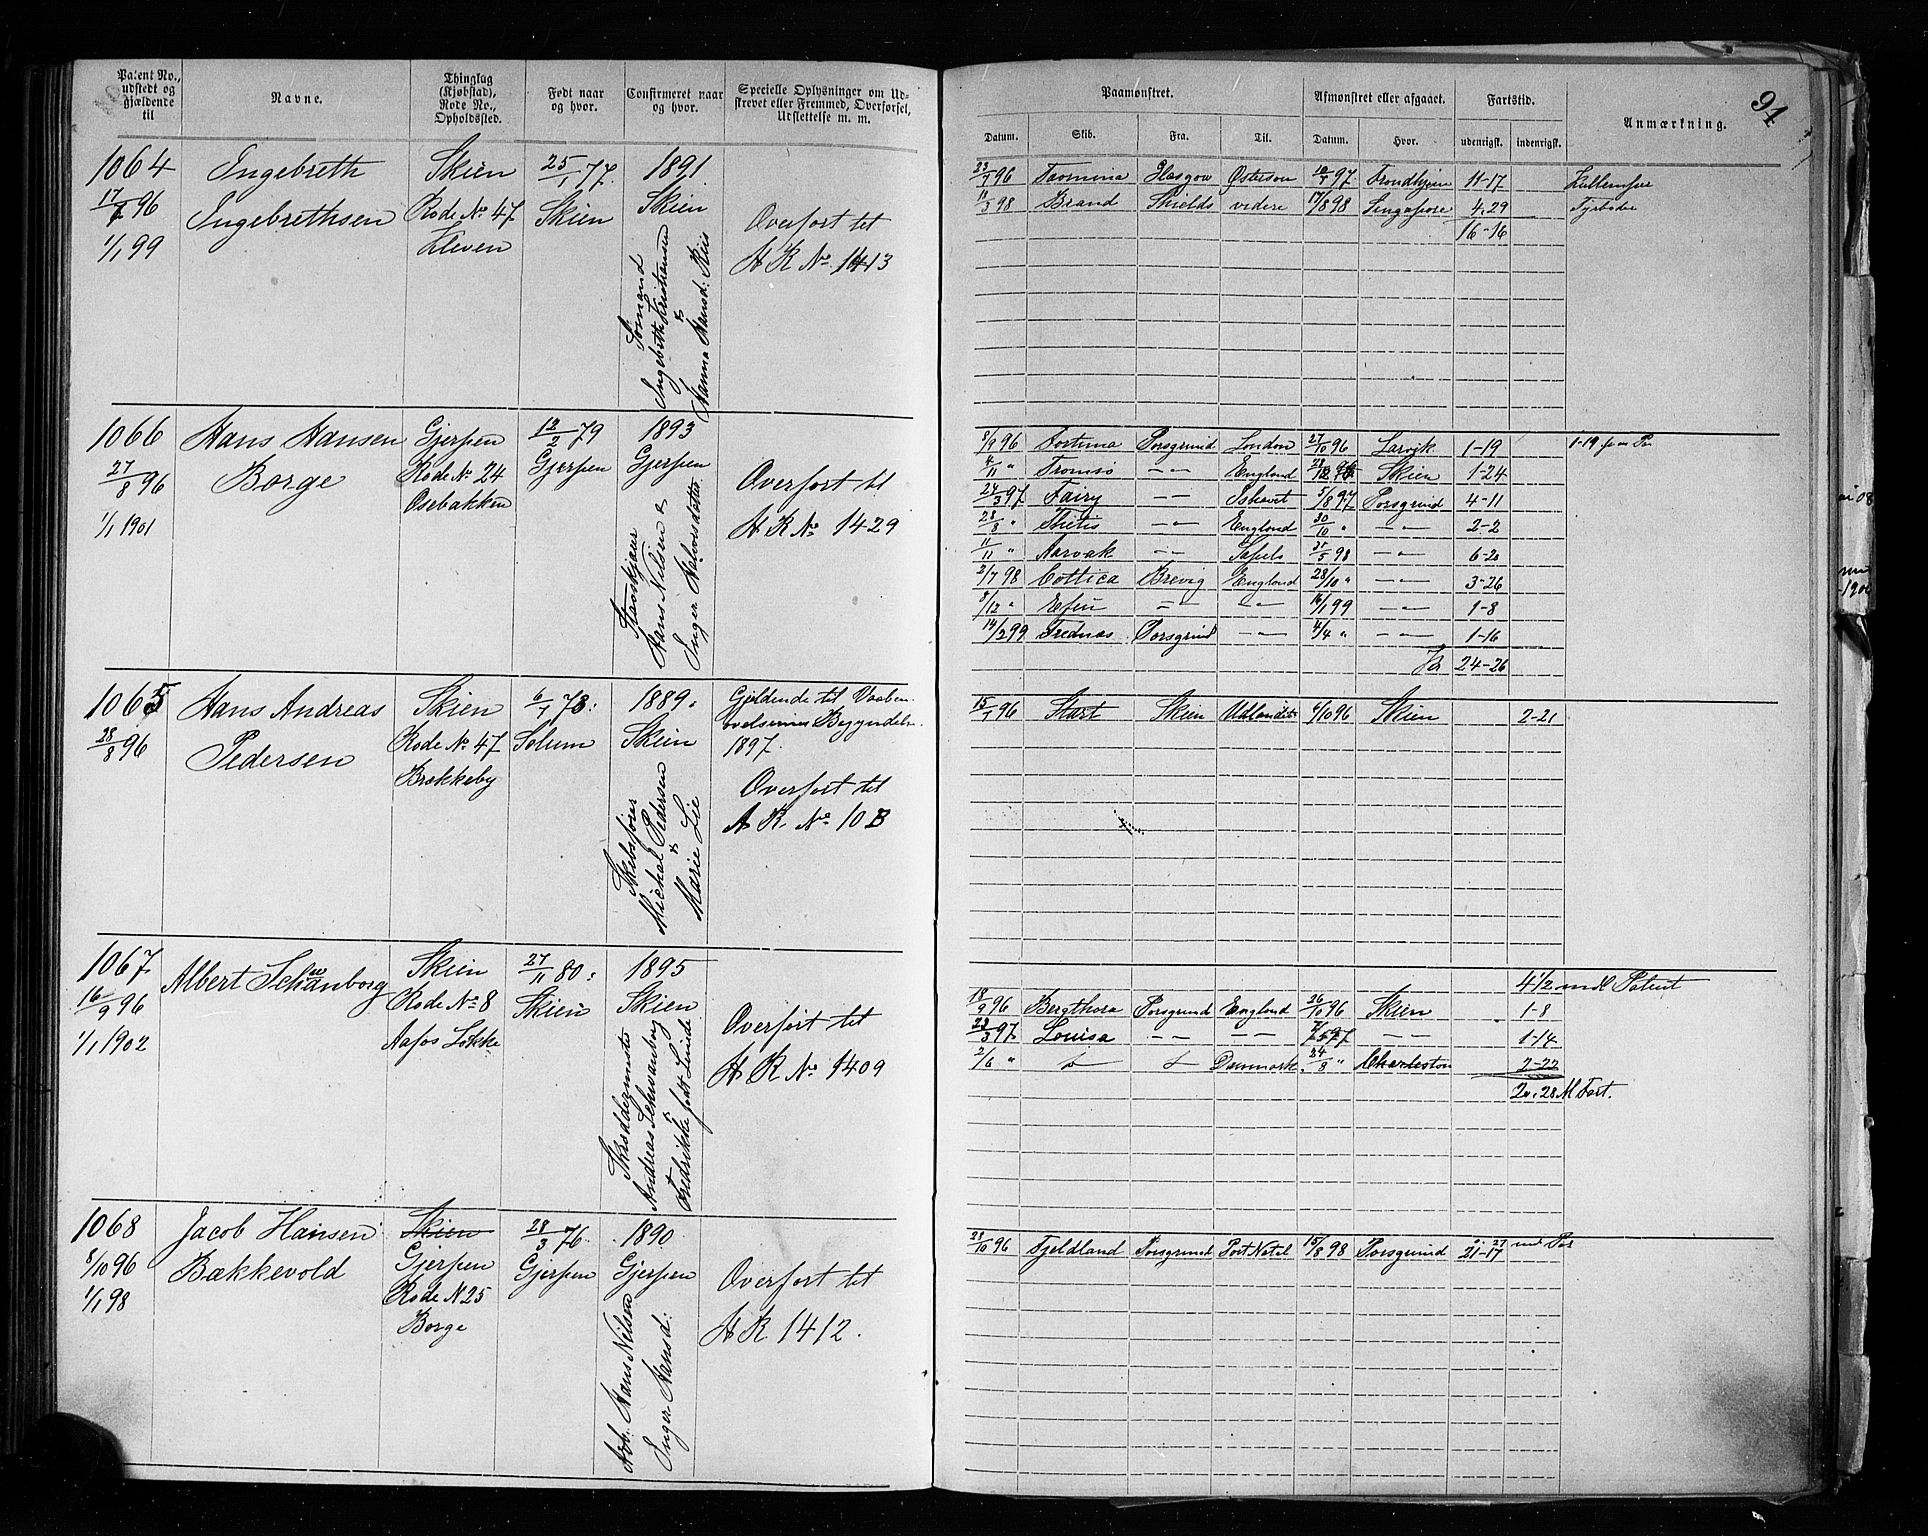 Patent No., udstedt og gjældende til
Navne.
Thinglag (Kjøbstad), Rode No., Opholdssted.
Født naar og hvor.
Confirmeret naar og hvor.
Specielle Oplysninger om Udskrevet eller Fremmed, Overførsel, Udslettelse m. m.
Paamønstret.
Afmønstret eller afgaaet.
Fartstid.
Anmærkning.
91
Datum.
Skib.
Fra.
Til.
Datum.
Hvor.
udenrigsk.
indenrigsk.
1064 Engebreth Skien 25/1 77. 1891.
Ingebrethsen Rode No 47 Skien Skien
1/1 99 Kleven
Overført til
H R No 1413
Sømand
Ingebreth Kristiansen
&
Hanna Hansd. Riis
23/7 96 Taormina Glasgow Østersøen 97 Trondhjem 11-17
11/3 98 Brand Shields videre 17/8 98 Singapore 4.29 Fyrbøder
16-16
1066 Hans Hansen Gjerpen 12/2 79 1893
27/8 96 Borge Rode No 24 Gjerpen Gjerpen
1/1 1901 Osebakken
Overført til
H R No 1429
Hans Nilsen &
Inger Halvorsdatter.
8/9 96 Fortuna Porsgrund London 27/10 96 Larvik 1-19
4/11 " Tromsø — " — England Skien 1-24
24/3 97 Fairy — " — Ishavet 5/8 97 Porsgrund 4-11
28/8 " Thetis — " — England 30/10 " — " — 2-2
11/11 " Narvak — " — 98 — " — 6-20
2/7 98 Cottica Brevig England 28/10 " — " — 3-26
8/12 " — " — — " — 16/1 99 — " — 1-8
14/2 99 Frednæs Porsgrund — " — 4/4 " — " — 1-16
24-26
1065 Hans Andreas Skien 6/1 78. 1889.
28/8 96 Pedersen Rode No 47 Solum Skien
Brækkeby
Gjeldende til Vaaben-
øvelsernes Begyndelse
1897.
Overført til
A R. No 10 B
Skibsfører
Michal Pedersen
&
Marie Lie
15/1 96 Start Skien Udlandet 96 Skien 2-21
1067 Albert Schanborg Skien 27/11 80. 1895
16/9 96 Rode No 8 Skien Skien
1/1 1902 Aafos Løkke
Overført til
H R No 1409
Skræddermester
Andreas Schwanborg
Fredrikke født Linde
4 1/2 md Patent
18/9 96 Bergthora Porsgrund England 26/10 96 Skien 1-8
23/3 97 Louisa — " — — " — — " — 1-14
2/6 " Danmark 24/8 " Charleston 2-22
28 M Fart.
1068 Jacob Hansen Skien 28/3 76. 1890
8/10 96 Bækkevold Gjerpen Gjerpen Gjerpen
1/1 98 Rode N 25
Borge
Overført til
H R 1412.
Arb. Hans Nilsen
Inger Hansd.
28/10 96 Fjeldland Porsgrund Port Natal 15/8 98 Porsgrund 21-17